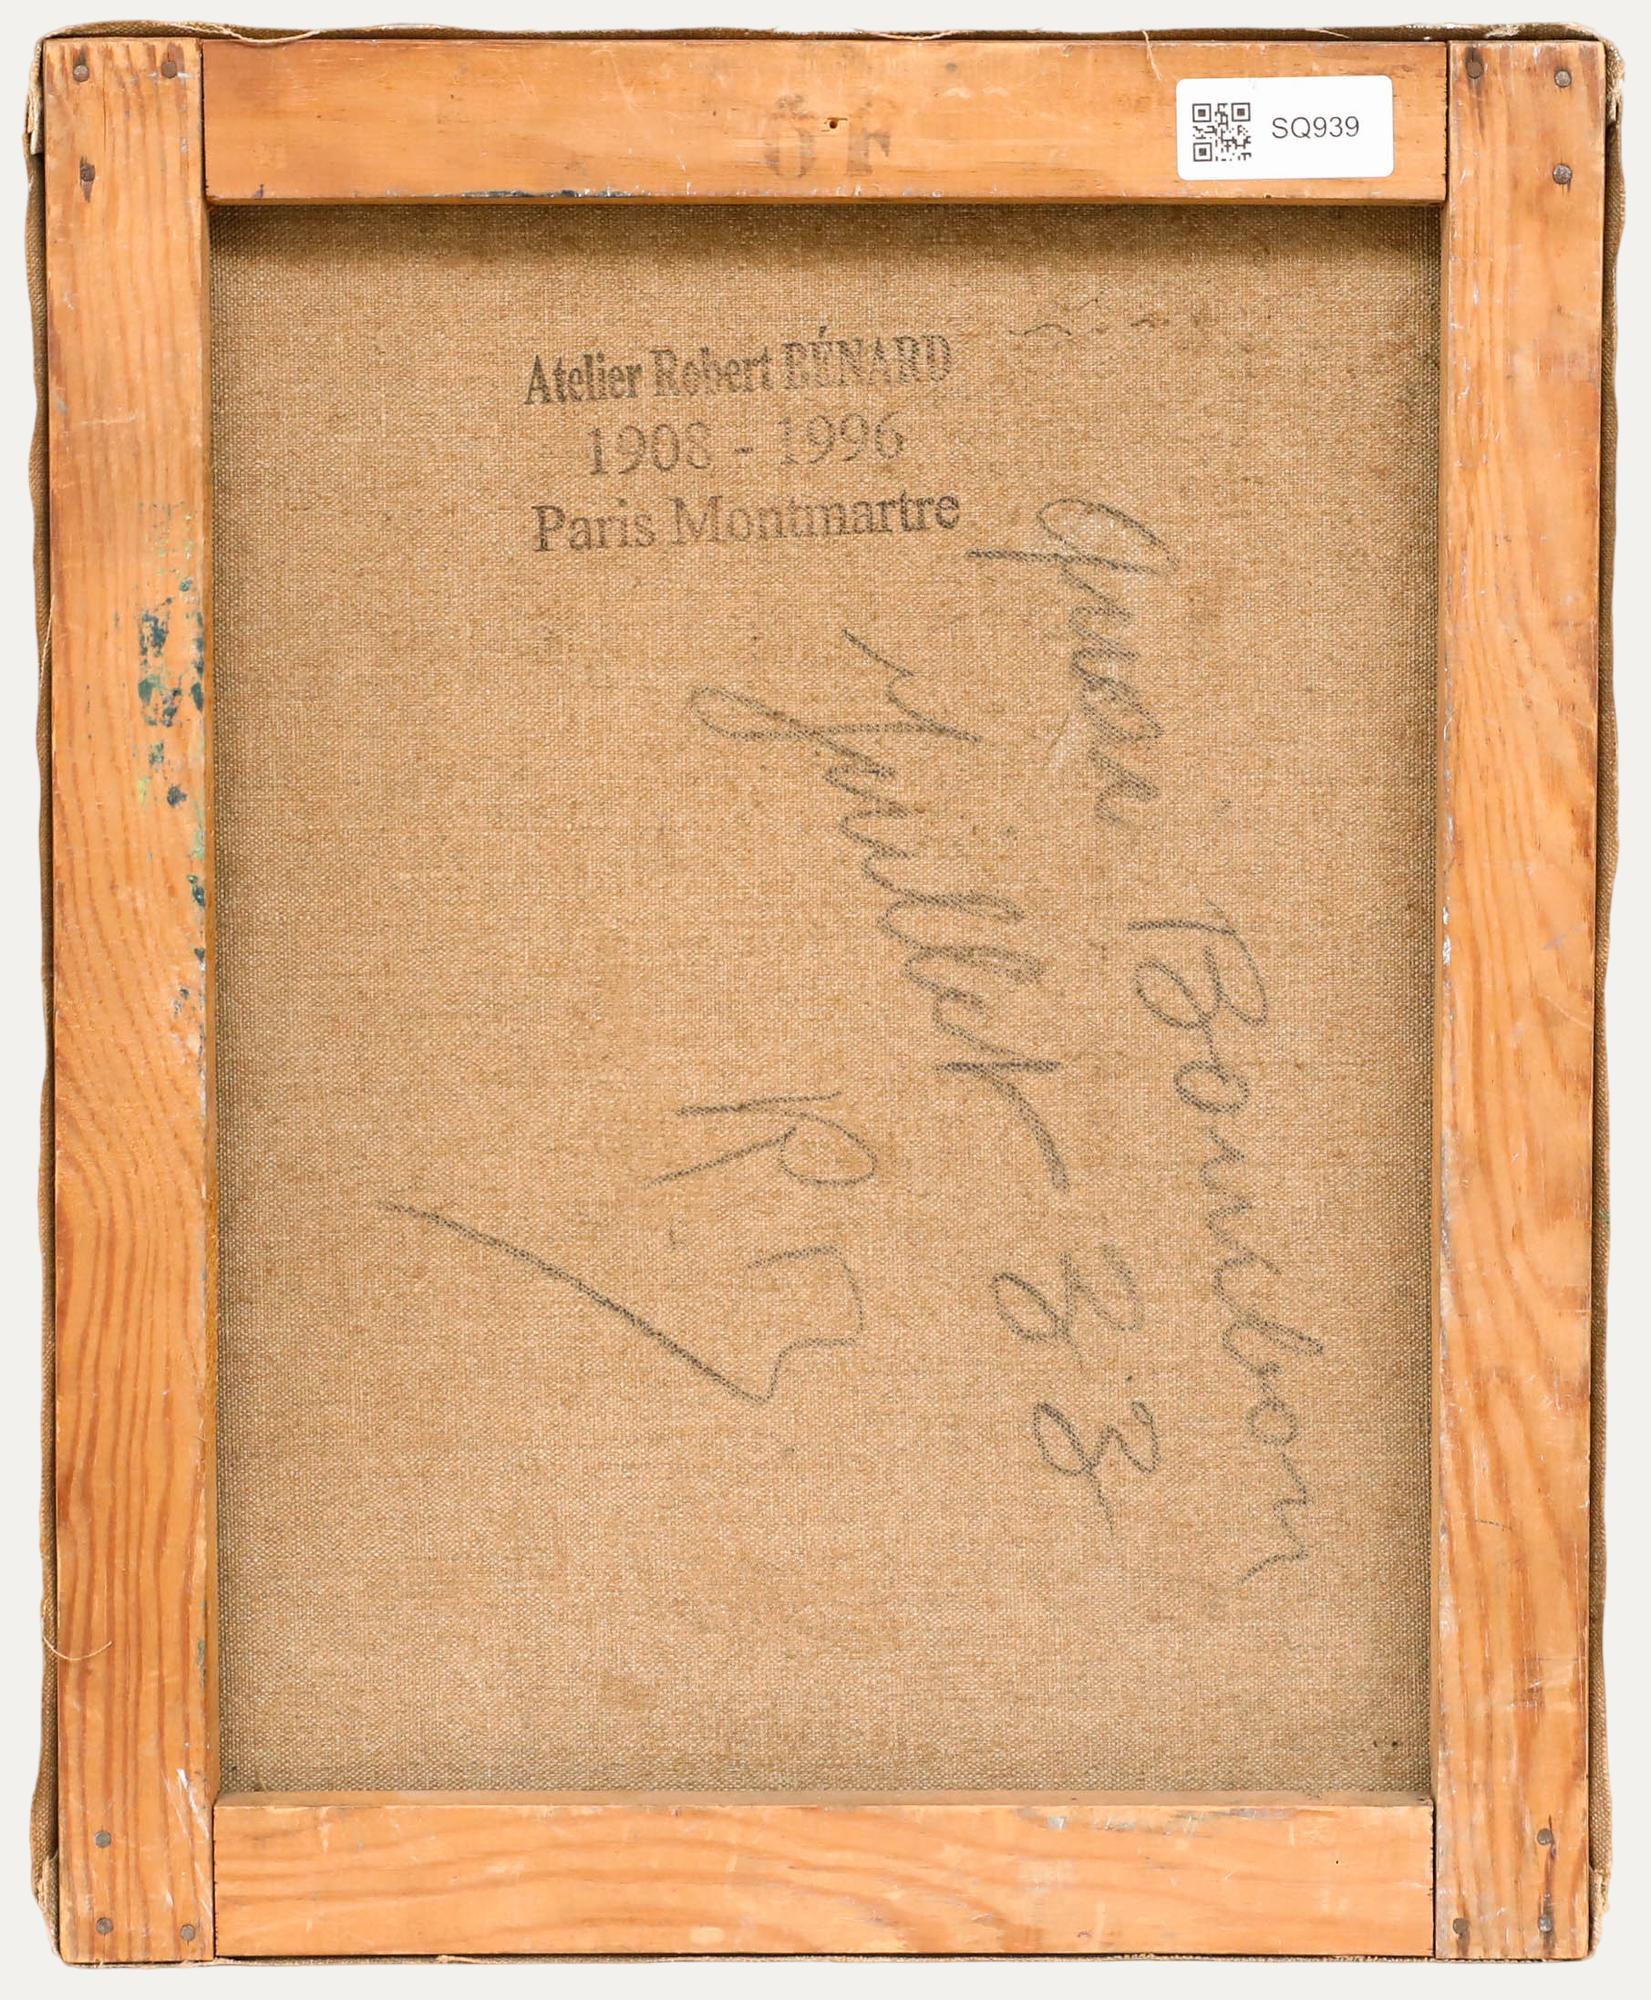 SQ939
Atelier Robert BÉNARD
1908 - 1996
Paris Montmartre
Quai Bourbon
Juillet 38
R. B